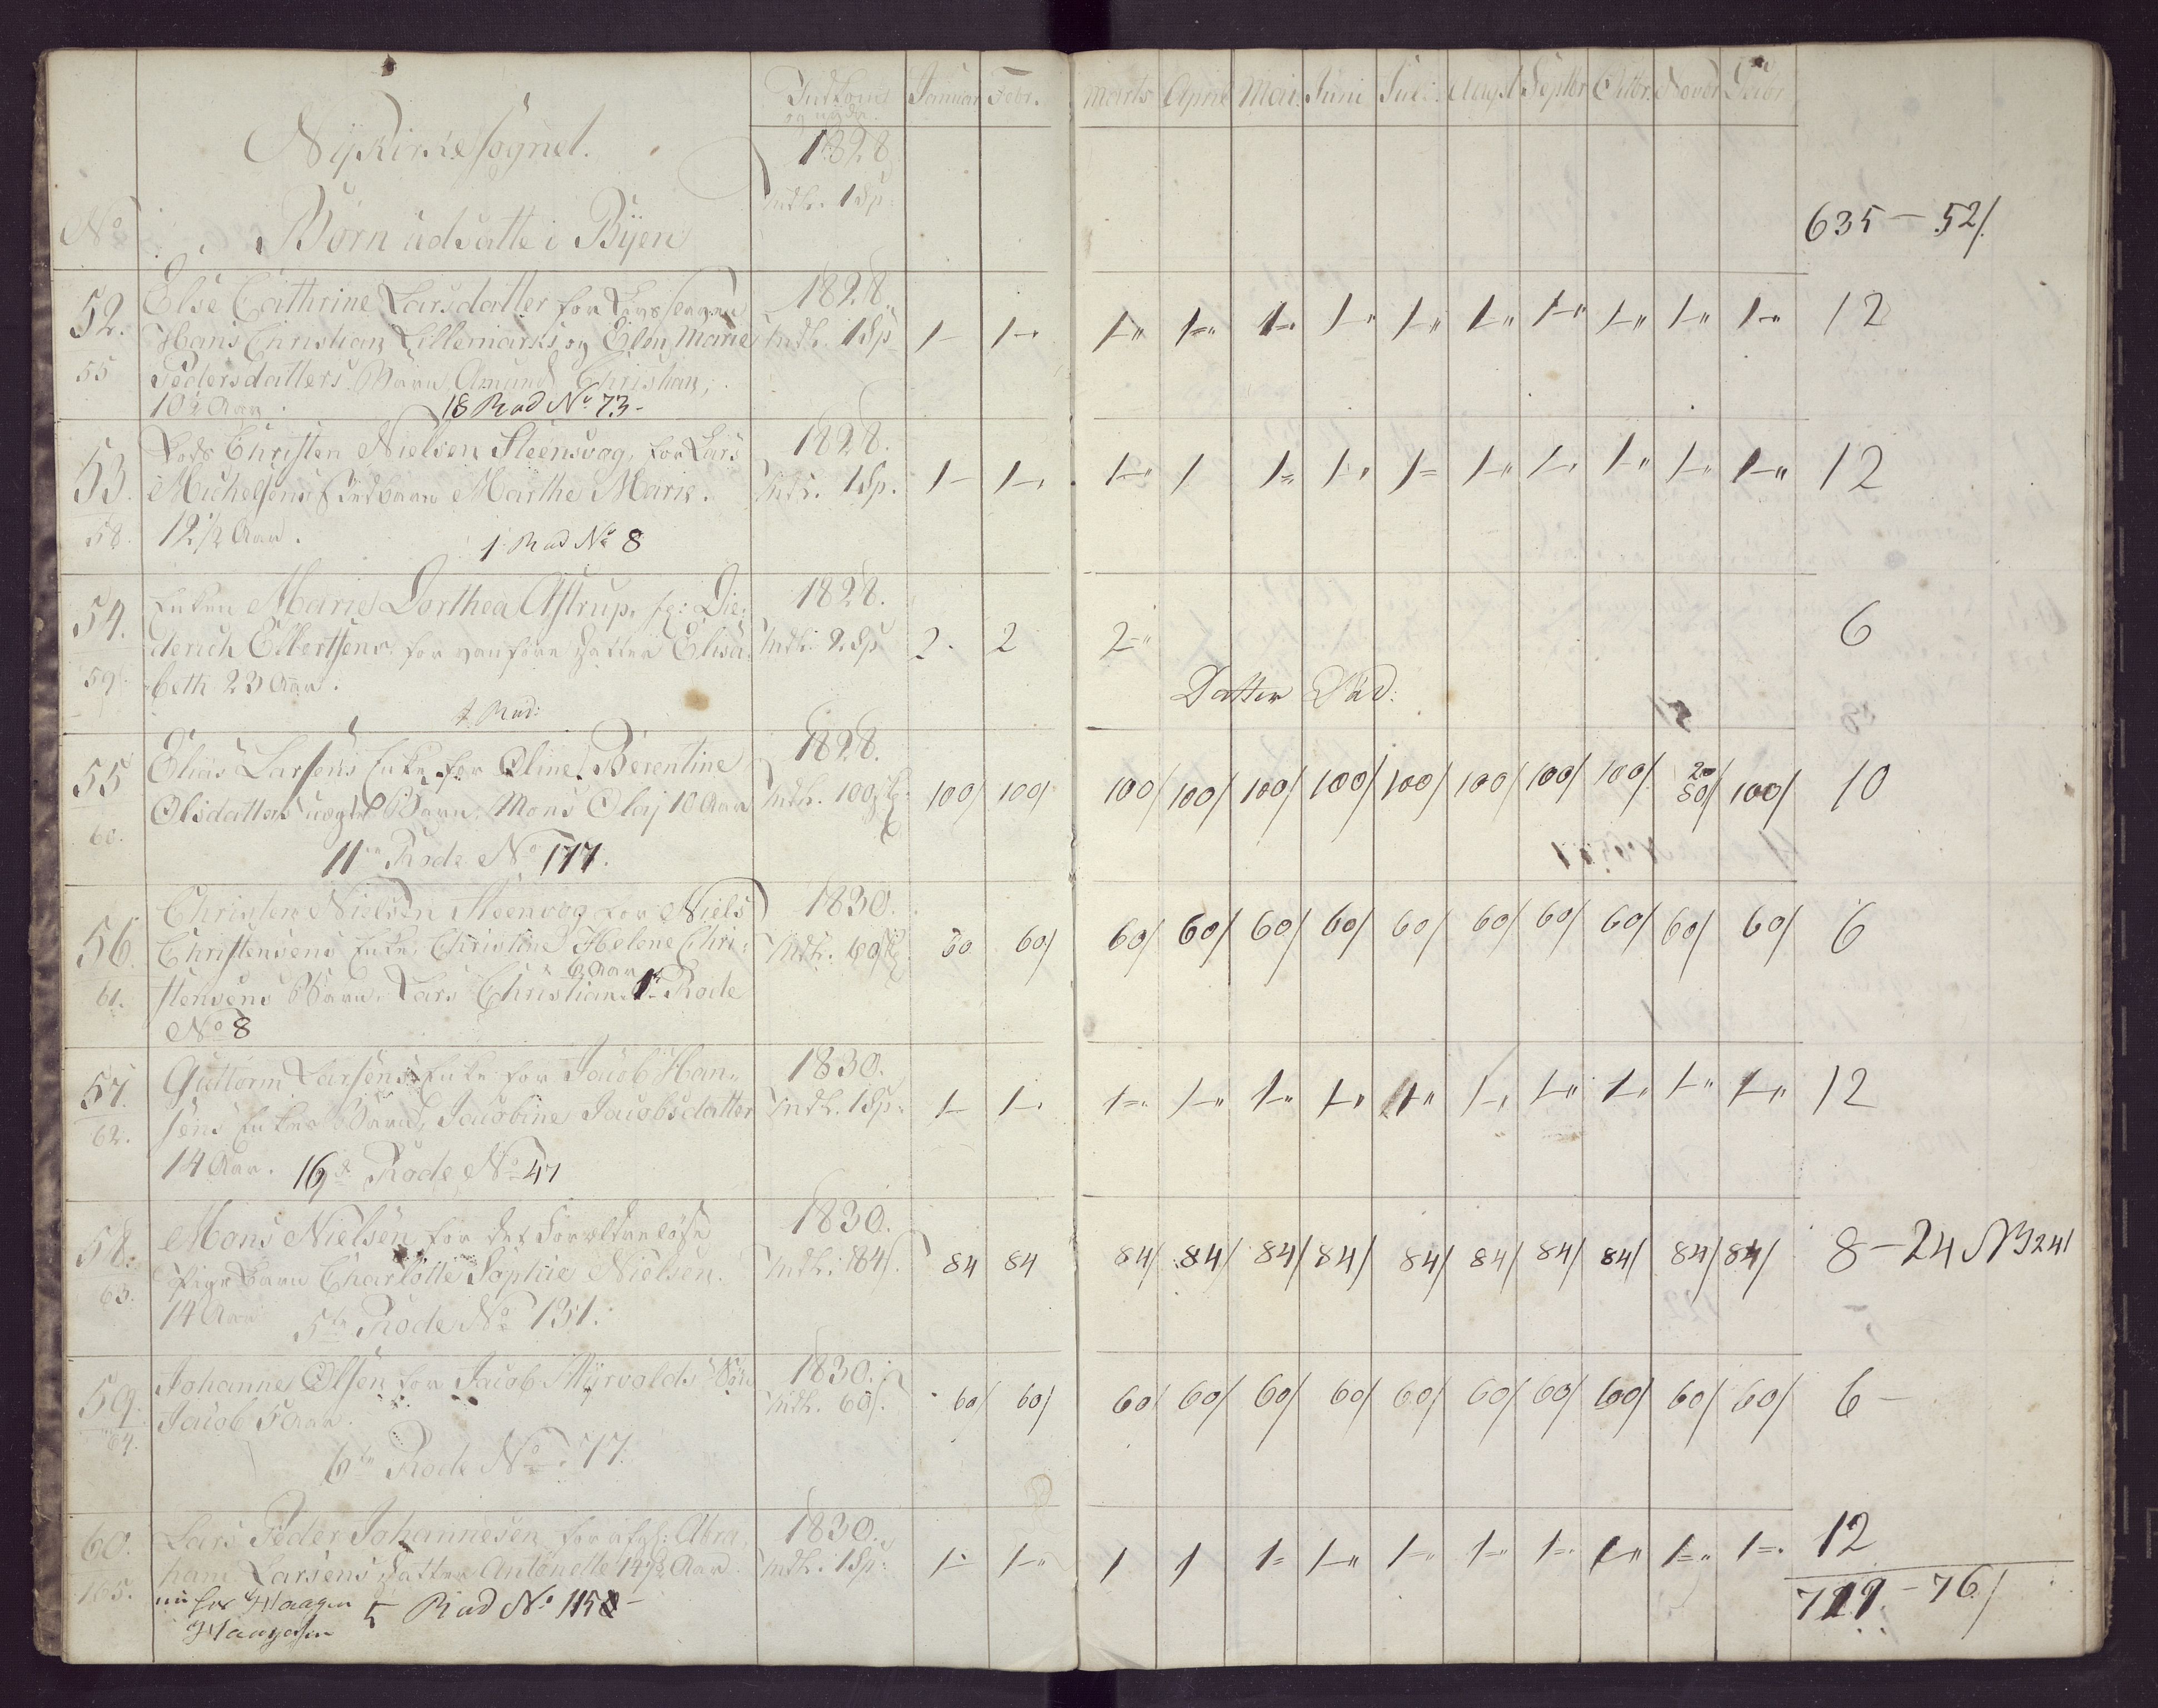 Nykirkesognet.
Januar Febr. Marts April Mai. Juni Juli Augst Septbr Octbr. Novbr Decbr
1828
Mdl. 1 Sp.
No Børn udsatte i Byen
635 – 52/.
52. Else Cathrine Larsdatter for 1828. 1– 1–. 1–„ 1–„ 1–. 1–„ 1–„ 1–„ 1–„ 1–„ 1–„ 1–„ 12
Hans Christian Lillemarks og Elen Marie Mdl. 1 Sp
55 Pedersdatters Barn Amund Christian,
10½ Aar. 18 Rod No. 73 –
53. Lods Christen Nielsen Steensvog, for Lars 1828. 1– 1–. 1–„ 1 1– 1–„ 1– 1–„ 1–. 1–„ 1–„ 1–„ 12
Michelsens Barn Marthe Marie. Mdl. 1 Sp.
58. 12½ Aar. 1 Rod No 8
54. Enken Marie Dorthea Astrup, sg: Die= 1828. 2. 2 2–„ 6
derich Eilertsens for vanføre Datter Elisa= Mdl. 2 Sp
59. beth 23 Aar. Datter Död.
Rod:
55 Elias Larsens Enke for Oline Berentine 1828. 100/ 100/ 100/ 100/ 100/ 100/ 100/ 100/ 100/ 100/ 20 80/ 100/ 10
Olsdatters uægte Barn, Mons Olaj 10 Aar Mdl. 100 ß
60. 11te Rode No 177.
56. Christen Nielsen Steenvog for Niels 1830. 60 60/ 60/ 60/ 60/ 60/ 60/ 60/ 60/ 60/ 60/ 60/ 6
Christensens Enke, Christine Helene Chri= Mdl. 60 ß
61. stensens Barn, Lars Christian 6 Aar 1te Rode
No 8
57. Guttorm Larsens Enke for Jacob Han= 1830. 1– 1–. 1–. 1–„ 1–„ 1–„ 1–„ 1–. 1–„ 1–„ 1–„ 1–„ 12
62. sens Enkes Barn, Jacobine Jacobsdatter Mdl. 1 Sp.
14 Aar. 16de Rode No 47
58. Mons Nielsen for det Forældreløse 1830. 84 84 84/ 84/ 84/ 84/ 84/ 84/ 84/ 84/ 84/ 84/ 8 – 24 NB 24/
63. Pigebarn Charlotte Sophie Nielsen. Mdl. 84/.
14 Aar 5te Rode No 131.
59. Johannes Olsen for Jacob Myrvolds Søn 1830. 60/ 60/ 60/ 60/ 60/ 60/ 60/ 60/ 60/ 60/ 60/ 60/ 6 –
64. Jacob 5 Aar. Mdl. 60/.
6te Rode No. 77.
60. Lars Peder Johannesen for afgl: Abra= 1830. 1– 1–„ 1 1 1– 1–„ 1– 1–„ 1–. 1–„ 1–„ 1–. 12
165. ham Larsens Datter Antonette 14½ Aar. Mdl. 1 Sp.
nu hos Haagen 5 Rod No. 115 –
Haagensen
– 76/